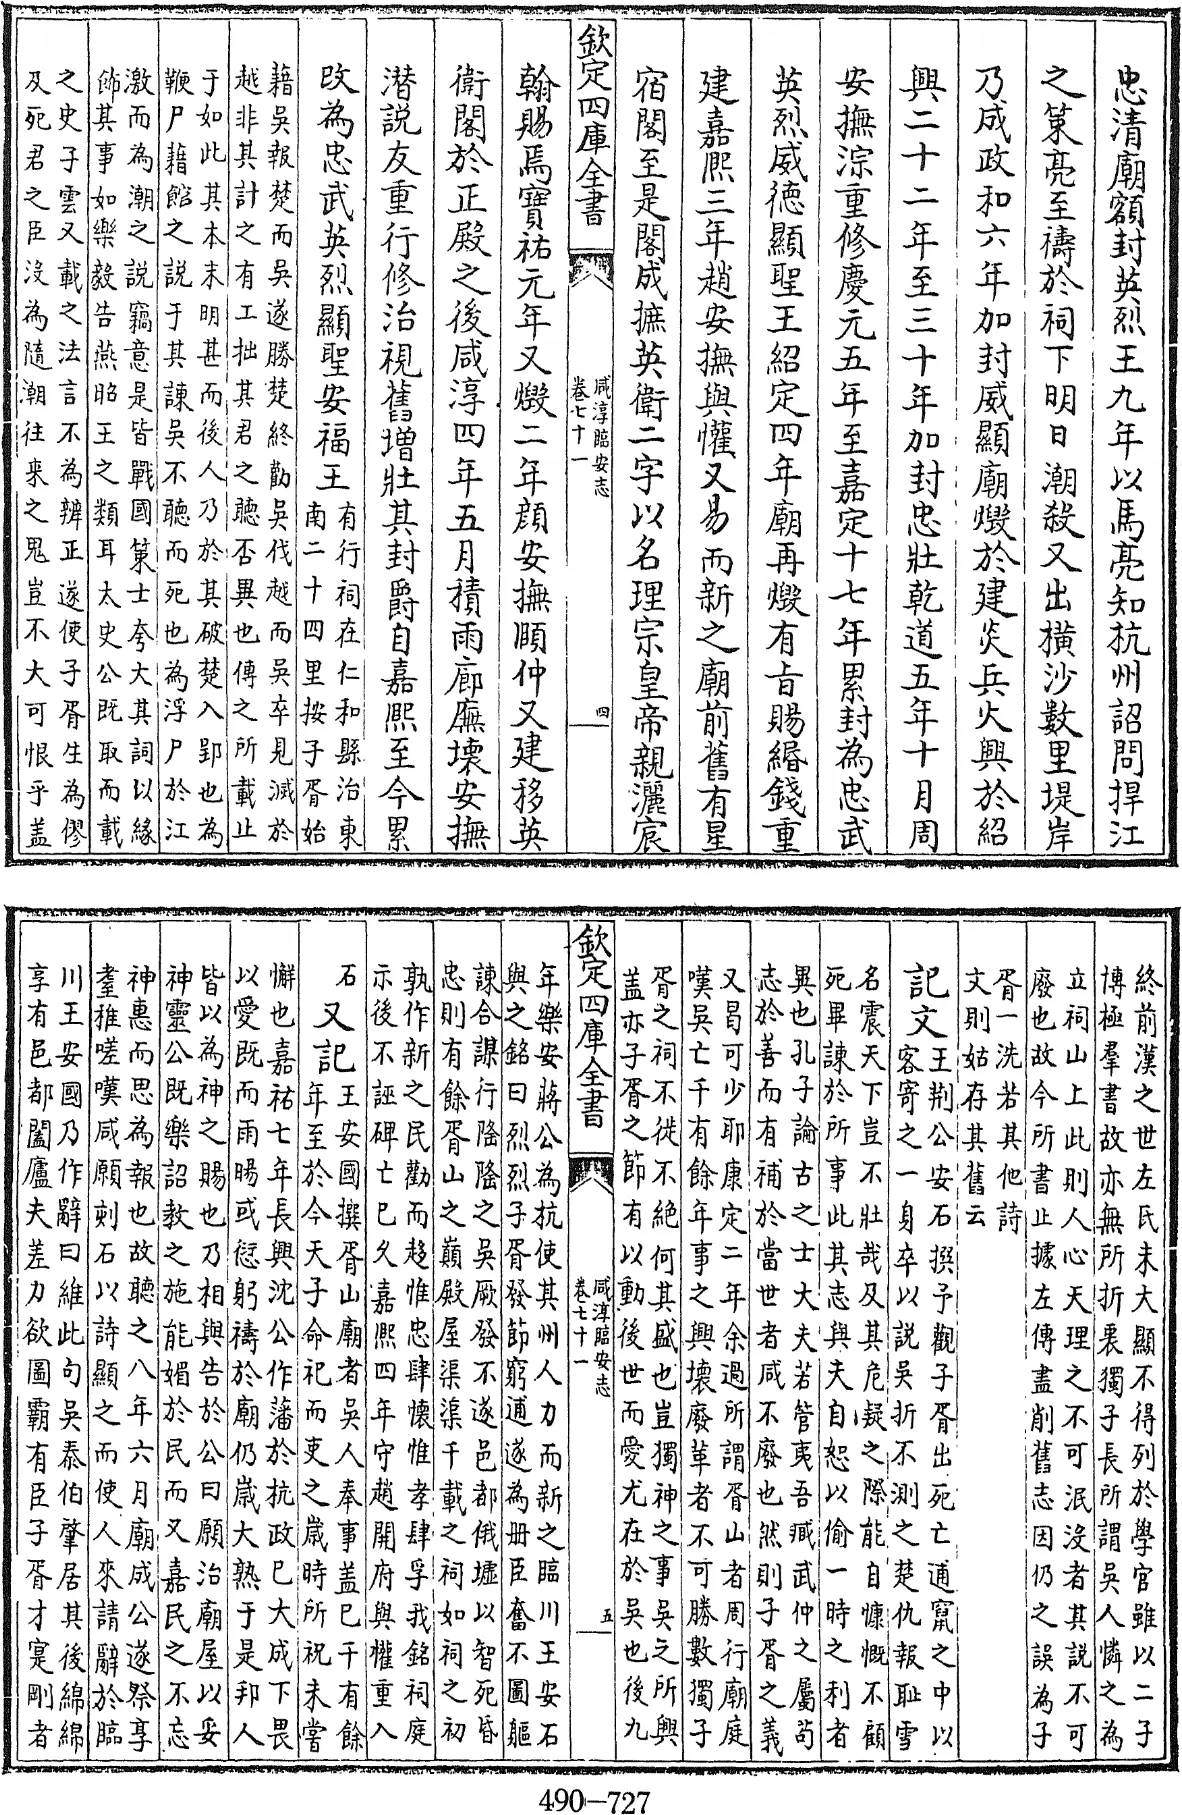 忠清廟額封英烈王九年以馬亮知杭州詔問捍江
之策亮至禱於祠下明日潮殺又出橫沙數里堤岸
乃成政和六年加封威顯廟燬於建炎兵火興於紹
興二十二年至三十年加封忠壯乾道五年十月周
安撫淙重修慶元五年至嘉定十七年累封為忠武
英烈威德顯聖王紹定四年廟再燬有旨賜緡錢重
建嘉熙三年趙安撫與懽又易而新之廟前舊有星
宿閣至是閣成摭英衛二字以名理宗皇帝親灑宸
欽定四庫全書
咸淳臨安志
卷七十一
四
翰賜焉寶祐元年又燬二年顔安撫頤仲又建移英
衛閣於正殿之後咸淳四年五月積雨廊廡壞安撫
潛說友重行修治視舊增壯其封爵自嘉熙至今累
改為忠武英烈顯聖安福王
有行祠在仁和縣治東
南二十四里按子胥始
藉吳報楚而吳遂勝楚終勸吳伐越而吳卒見滅於
越非其計之有工拙其君之聽否異也傳之所載止
于如此其本末明甚而後人乃於其破楚入郢也為
鞭尸藉館之說于其諫吳不聽而死也為浮尸於江
激而為潮之說竊意是皆戰國策士夸大其詞以緣
飾其事如樂毅告燕昭王之類耳太史公既取而載
之史子雲又載之法言不為辨正遂使子胥生為僇
及死君之臣沒為隨潮往來之鬼豈不大可恨乎盖
終前漢之世左氏未大顯不得列於學官雖以二子
博極羣書故亦無所折衷獨子長所謂吳人憐之為
立祠山上此則人心天理之不可泯沒者其說不可
廢也故今所書止據左傳盡削舊志因仍之誤為子
胥一洗若其他詩
文則姑存其舊云
記文
王荆公安石撰予觀子胥出死亡逋竄之中以
客寄之一身卒以說吳折不測之楚仇報耻雪
名震天下豈不壯哉及其危凝之際能自慷慨不顧
死畢諫於所事此其志與夫自恕以偷一時之利者
異也孔子論古之士大夫若管夷吾臧武仲之屬茍
志於善而有補於當世者咸不廢也然則子胥之義
又曷可少耶康定二年余過所謂胥山者周行廟庭
嘆吳亡千有餘年事之興壞廢革者不可勝數獨子
胥之祠不徙不絶何其盛也豈獨神之事吳之所興
盖亦子胥之節有以動後世而愛尤在於吳也後九
欽定四庫全書
咸淳臨安志
卷七十一
五
年樂安蔣公為杭使其州人力而新之臨川王安石
與之銘曰烈烈子胥發節窮逋遂為册臣奮不圖軀
諫合謀行隆隆之吳厥發不遂邑都俄墟以智死昏
忠則有餘胥山之巔殿屋渠渠千載之祠如祠之初
孰作新之民勸而趨惟忠肆懷惟孝肆孚我銘祠庭
示後不誣碑亡已久嘉熙四年守趙開府與懽重入
石
又記
王安國撰胥山廟者吳人奉事盖已千有餘
年至於今天子命祀而吏之歲時所祝未嘗
懈也嘉祐七年長興沈公作藩於杭政已大成下畏
以愛既而雨暘或愆躬禱於廟仍歲大熟于是邦人
皆以為神之賜也乃相與告於公曰願治廟屋以妥
神靈公既樂詔教之施能媚於民而又嘉民之不忘
神惠而思為報也故聽之八年六月廟成公遂祭享
耋稚嗟嘆咸願刻石以詩顯之而使人來請辭於臨
川王安國乃作辭曰維此句吳泰伯肇居其後綿綿
享有邑都闔廬夫差力欲圖霸有臣子胥才寔剛者
490—727